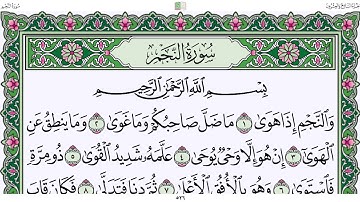 سُورَةُ النَّجْمِ
بِسْمِ اللَّهِ الرَّحْمَٰنِ الرَّحِيمِ
وَالنَّجْمِ إِذَا هَوَىٰ ١ مَا ضَلَّ صَاحِبُكُمْ وَمَا غَوَىٰ ٢ وَمَا يَنطِقُ عَنِ
الْهَوَىٰ ٣ إِنْ هُوَ إِلَّا وَحْيٌ يُوحَىٰ ٤ عَلَّمَهُ شَدِيدُ الْقُوَىٰ ٥ ذُو مِرَّةٍ
فَاسْتَوَىٰ ٦ وَهُوَ بِالْأُفُقِ الْأَعْلَىٰ ٧ ثُمَّ دَنَا فَتَدَلَّىٰ ٨ فَكَانَ قَابَ
٥٢٦